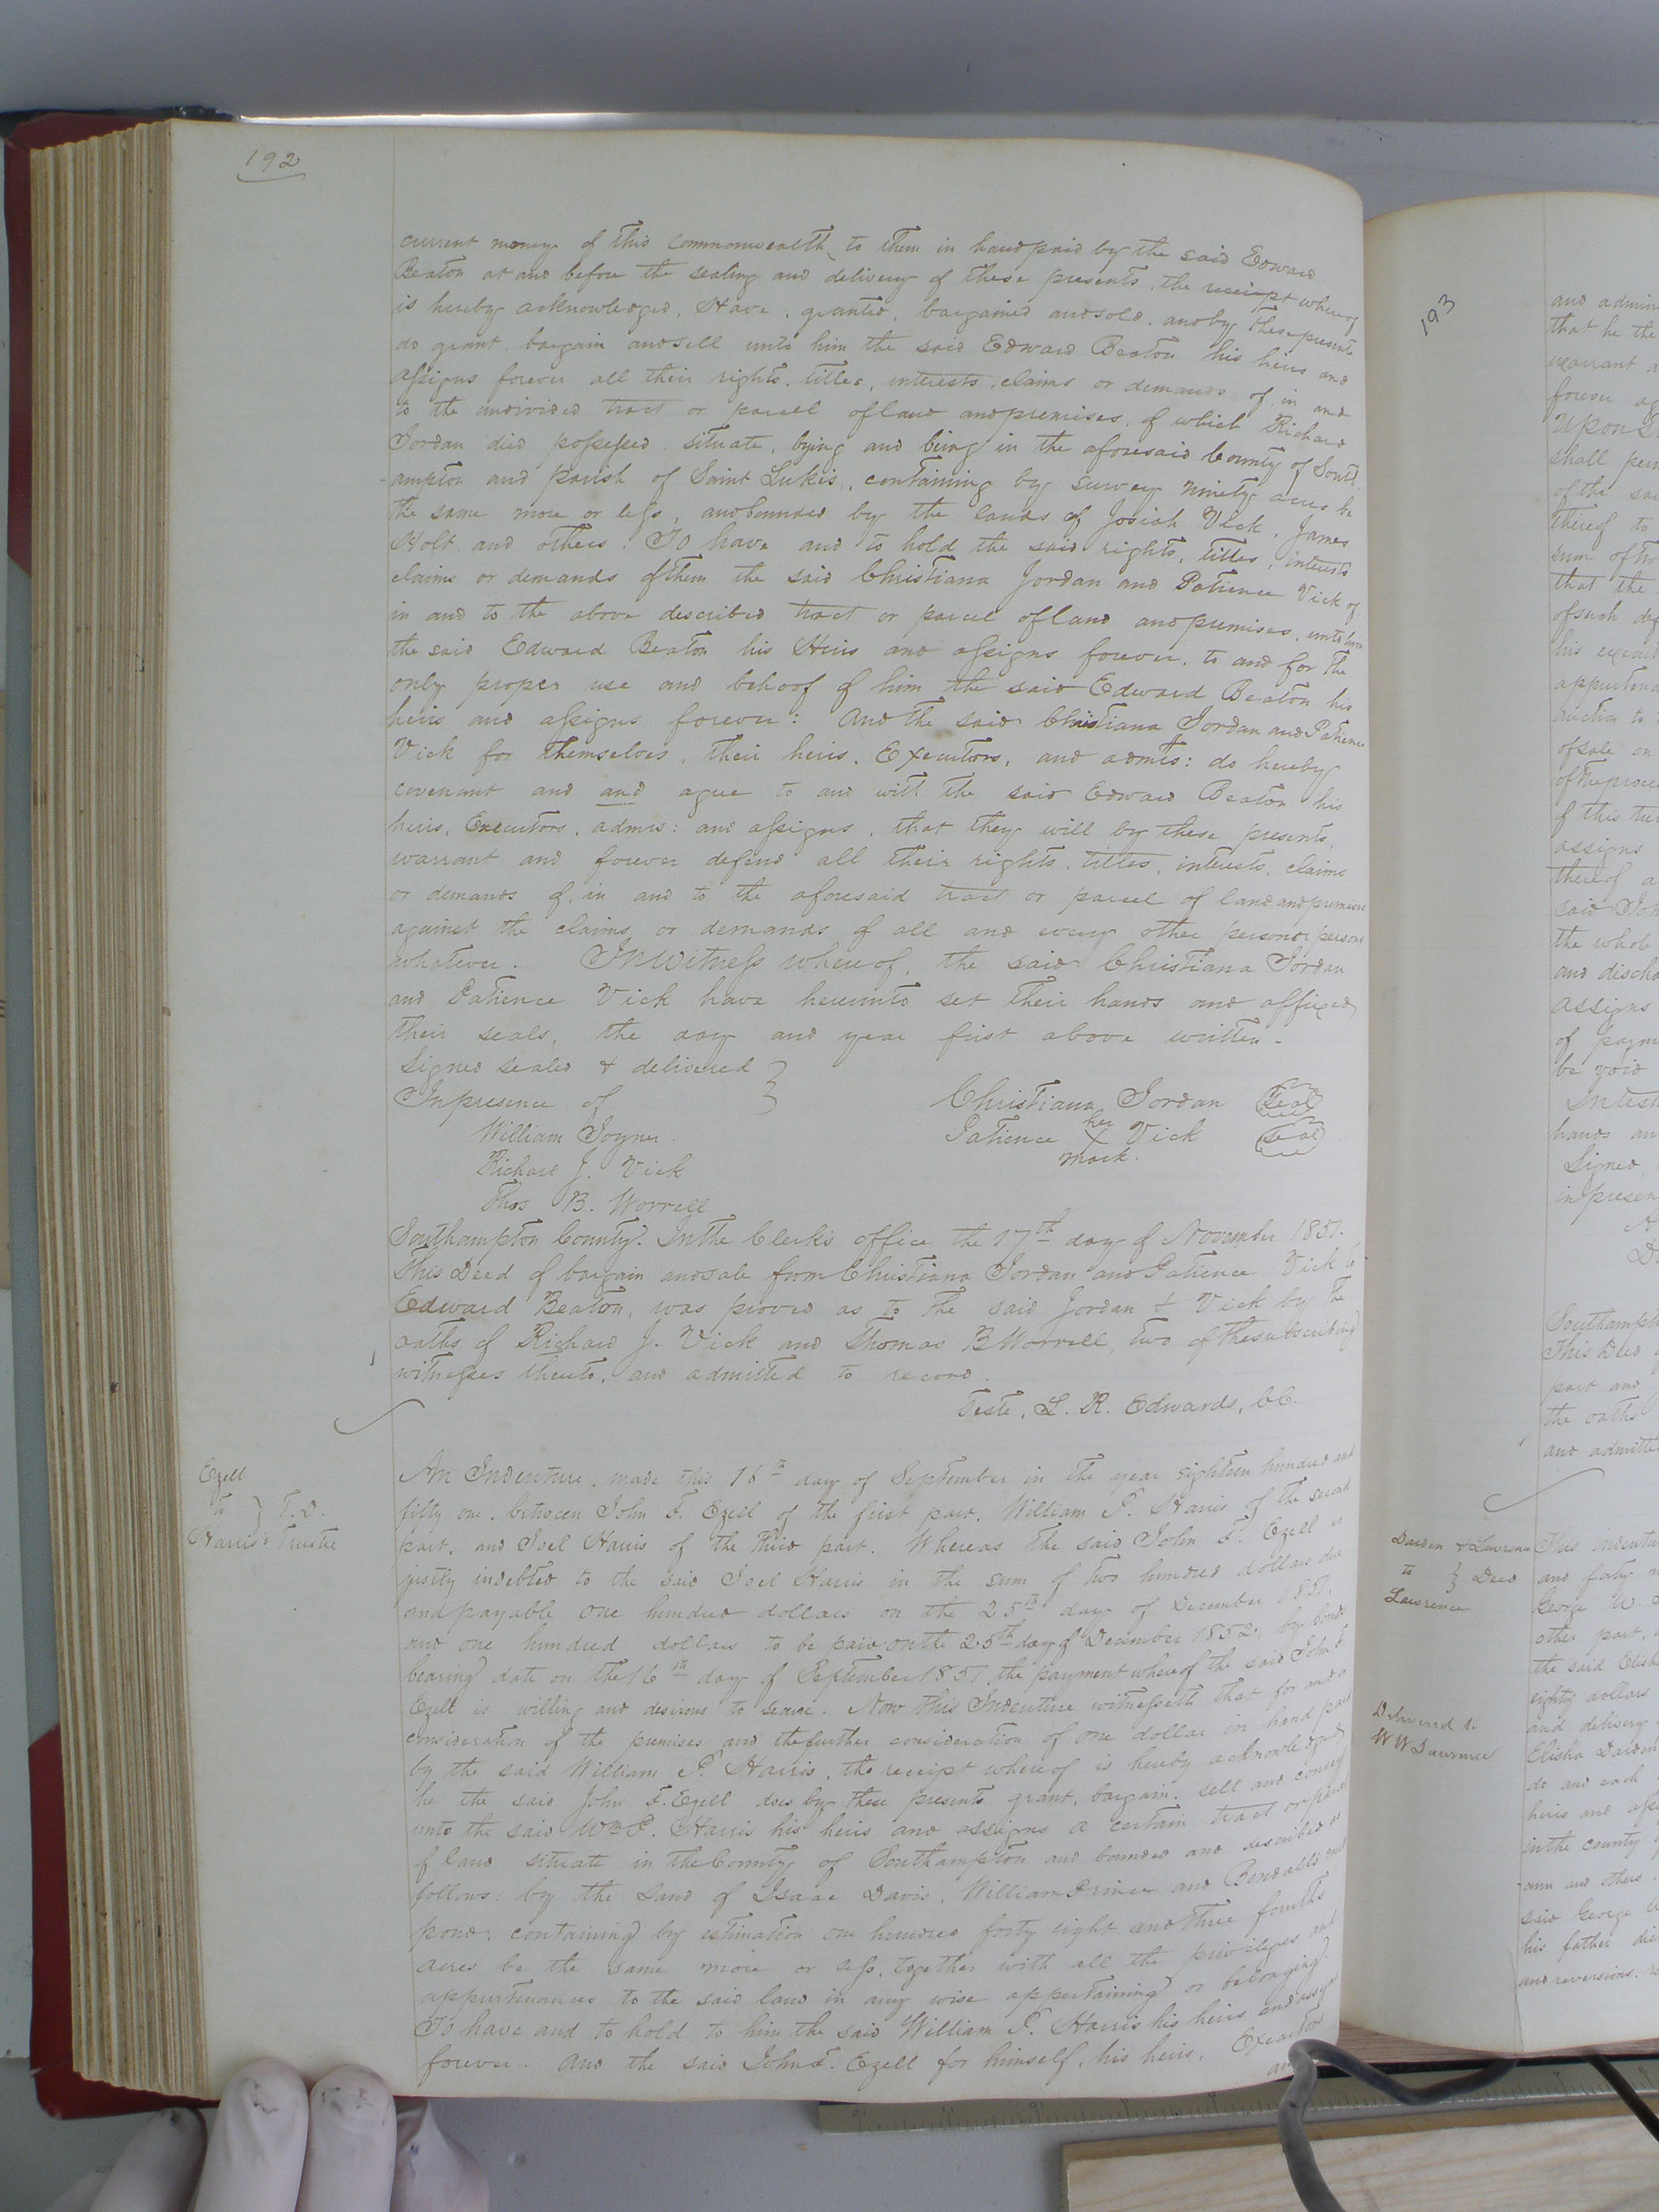 192
current money of this commonwealth, to them in hand paid by the said Edward
Beaton at and before the sealing and delivery of these presents, the receipt whereof
is hereby acknowledged, Have, granted, bargained and sold, and by these presents
do grant, bargain and sell unto him the said Edward Beaton his heirs and
assigns forever all their rights, titles, interests, claims or demands of, in and
to the undivided tract or parcel of land and premises, of which Richard
Jordan died possessed, situate, lying and being in the aforesaid County of South
-ampton and parish of Saint Lukes, containing by survey Ninety acres be
the same more or less, and bounded by the lands of Josiah Vick, James
Holt and others: To have and to hold the said rights, titles, interests
claims or demands of them the said Christiana Jordan and Patience Vick of
in and to the above described tract or parcel of land and premises, unto him
the said Edward Beaton his Heirs and assigns forever, to and for the
only proper use and behoof of him the said Edward Beaton his
heirs and assigns forever: And the said Christiana Jordan and Patience
Vick for themselves, their heirs, Executors, and admrs: do hereby
covenant and and agree to and with the said Edward Beaton his
heirs, Executors, admrs: and assigns, that they will by these presents,
warrant and forever defend all their rights, titles, interests, claims
or demands of, in and to the aforesaid tract or parcel of land and premises
against the claims or demands of all and every other person or persons
whatever. In Witness whereof, the said Christiana Jordan
and Patience Vick have hereunto set their hands and affixed
their seals, the day and year first above written.
Signed sealed & delivered }
In presence of
Christiana Jordan Seal
William Joyner
Patience her X mark. Vick Seal
Richard J. Vick
Thos B. Worrell
Southampton County. In the Clerk's office the 17th day of November 1851.
This Deed of bargain and sale from Christiana Jordan and Patience Vick to
Edward Beaton, was proved as to the said Jordan & Vick by the
oaths of Richard J. Vick and Thomas B Worrell, two of the subscribing
witnesses thereto, and admitted to record.
Teste, L. R. Edwards, CC.
Ezell
to } T.D.
Harris's Trustee
An Indenture, made this 16th day of September in the year eighteen hundred and
fifty one, between John F. Ezell of the first part, William P. Harris of the second
part, and Joel Harris of the third part. Whereas the said John F. Ezell is
justly indebted to the said Joel Harris in the sum of two hundred dollars due
and payable one hundred dollars on the 25th day of December 1851,
and one hundred dollars to be paid on the 25th day of December 1852, by bond
bearing date on the 16th day of September 1851, the payment whereof the said John F
Ezell is willing and desirous to secure. Now this Indenture witnesseth that for and in
consideration of the premises and the further consideration of one dollar in hand paid
by the said William P. Harris, the receipt whereof is hereby acknowledged,
he the said John F. Ezell does by these presents grant, bargain, sell and convey
unto the said Wm P. Harris his heirs and assigns a certain tract or parcel
of land situate in the County of Southampton and bounded and described as
follows: by the Land of Isaac Davis, William Prince and
pond, containing by estimation one hundred forty eight and three fourths
acres be the same more or less, together with all the privileges and
appurtenances to the said land in any wise appertaining or belonging:
To have and to hold to him the said William P. Harris his heirs and assigns
forever. And the said John F. Ezell for himself, his heirs, Executors
193
and admin
that he the
warrant a
forever ag
Upon
shall
of the sai
thereof to
sum of
that the
of such def
his
auction to
of sale on
of the procee
assigns
thereof a
said Joh
the whole
and discha
assigns
of paym
be void
hands an
Signed,
in presen
Southampt
This Deed
part and
the oaths
and admitte
Darden & Lawrence
to } Deed
Lawrence
This Indentu
and forty
George W.
other part,
the said Elisha
eighty dollars
and delivery
Elisha Darden
do and each
heirs and
in the county
and others
said George W
his father
and reversions,
Delivered to
W W Lawrence